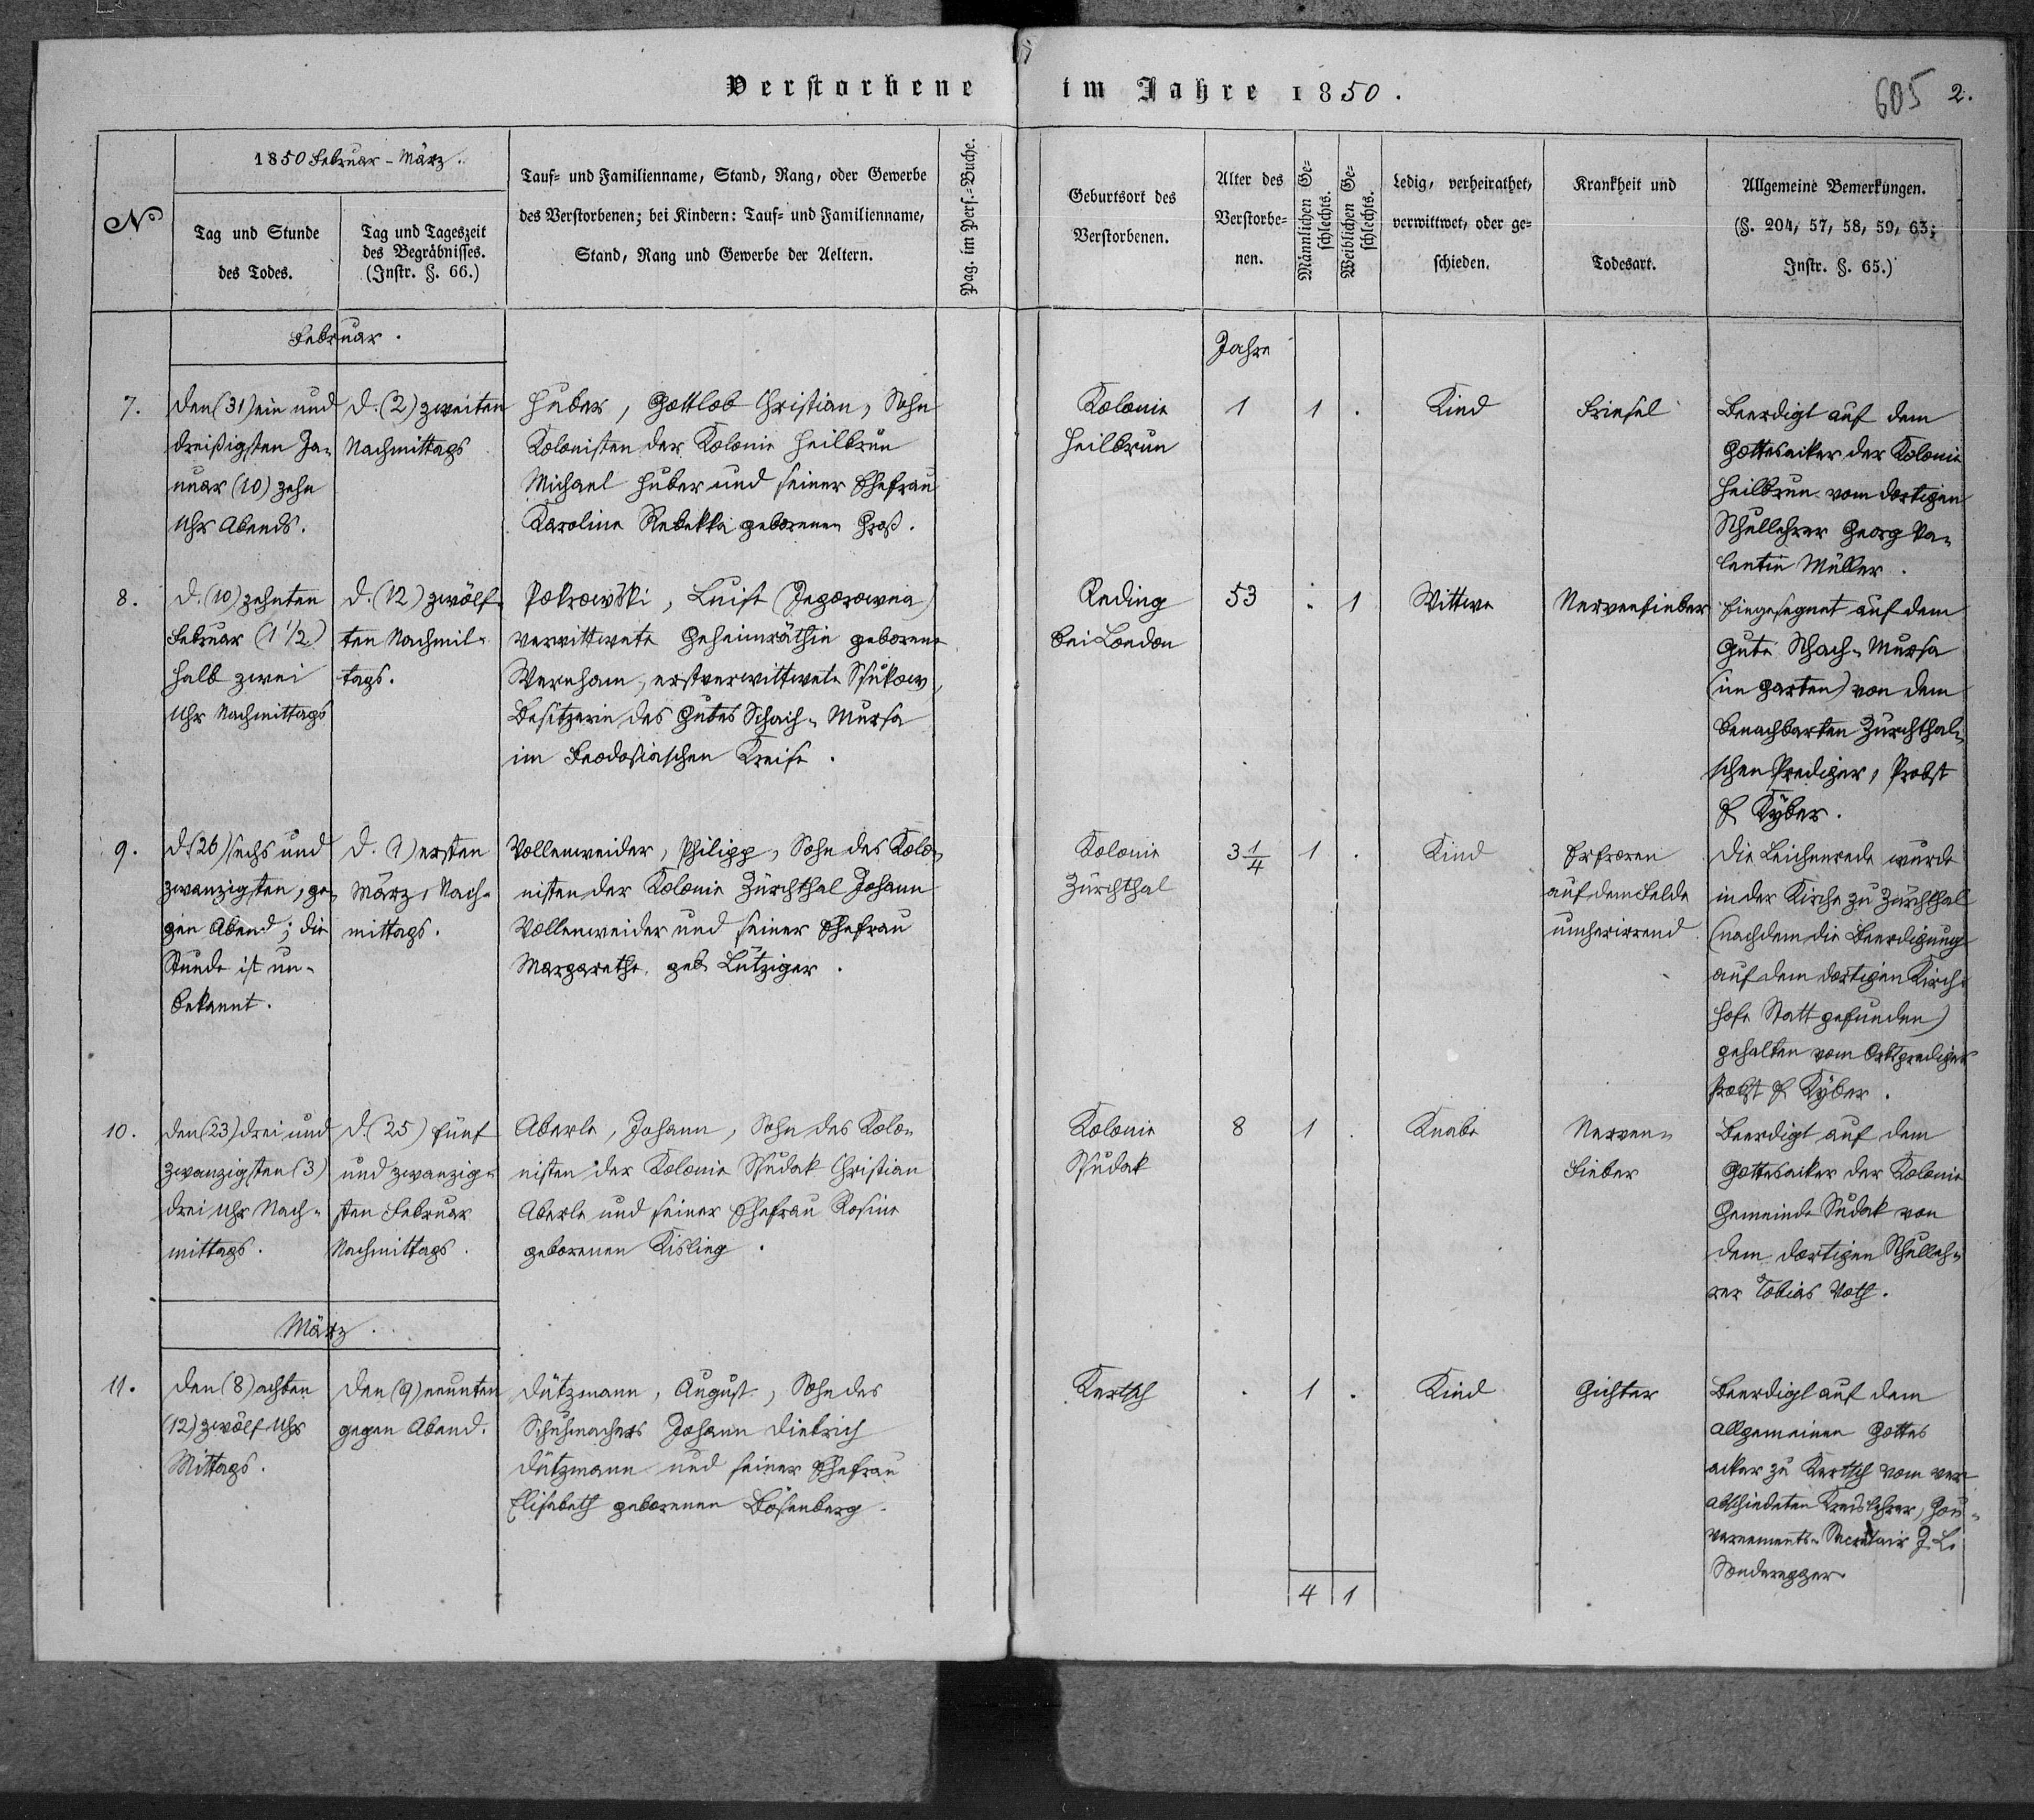 Verstorbene im Jahre 1850.
605 2.
№
1850 Februar - März.
Tag und Stunde
des Todes.
Tag und Tageszeit
des Begräbnisses.
(Instr. §. 66.)
Tauf= und Familienname, Stand, Rang, oder Gewerbe
des Verstorbenen; bei Kindern: Tauf= und Familienname,
Stand, Rang und Gewerbe der Aeltern.
Pag. im Pers.=Buche.
Geburtsort des
Verstorbenen.
Alter des
Verstorbe=
nen.
Männlichen Ge=
schlechts.
Weiblichen Ge=
schlechts.
Ledig, verheirathet,
verwittwet, oder ge=
schieden.
Krankheit und
Todesart.
Allgemeine Bemerkungen.
(§. 204, 57, 58, 59, 63;
Instr. §. 65.)
Februar.
Jahre
7.
den (31) ein und
dreißigsten Ja-
nuar (10) zehn
Uhr Abends.
d. (2) zweiten
Nachmittags
Huber, Gottlob Christian, Sohn
Kolonisten der Kolonie Heilbrun
Michael Huber und seiner Ehefrau
Karolina Rebekka geborenen Groß.
Kolonie
Heilbrun
1
1
.
Kind
Friesel
Beerdigt auf dem
Gottesacker der Kolonie
Heilbrun vom dortigen
Schullehrer Georg Va-
lentin Müller.
8.
d. (10) zehnten
Februar (1 1/2)
halb zwei
Uhr Nachmittags
d. (12) zwölf-
ten Nachmit-
tags.
Pokrowski, Luise (Jegorowna)
verwittwete Geheimräthin geborene
Wernham, erstverwittwete Schukow,
Besitzerin des Gutes Schach-Mursa
im Feodosiaschen Kreise.
Reding
bei London
53
.
1
Wittwe
Nervenfieber
Eingesegnet auf dem
Gute Schach-Mursa
(im Garten) von dem
benachbarten Zürchthal-
schen Prediger, Probst
F Kyber.
9.
d. (26) sechs und
zwanzigsten, ge-
gen Abend; die
Stunde ist un-
bekannt.
d. (1) ersten
März, Nach-
mittags.
Vollenweider, Philipp, Sohn des Kolo-
nisten der Kolonie Zürchthal Johann
Vollenweider und seiner Ehefrau
Margarethe. geb. Lutziger.
Kolonie
Zürchthal
3 1/4
1
.
Kind
Erfroren
auf dem Felde
umherirrend
Die Leichenrede wurde
in der Kirche zu Zürchthal
(nachdem die Beerdigung
auf dem dortigen Kirch-
hofe Statt gefunden)
gehalten vom Ortsprediger
Probst F Kyber.
10.
den (23) drei und
zwanzigsten (3)
drei Uhr Nach-
mittags.
d. (25) fünf
und zwanzig-
sten Februar
Nachmittags.
Aberle, Johann, Sohn des Kolo-
nisten der Kolonie Sudak Christian
Aberle und seiner Ehefrau Rosine
geborenen Kisling.
Kolonie
Sudak
8
1
.
Knabe
Nerven-
Fieber
Beerdigt auf dem
Gottesacker der Kolonie
Gemeinde Sudak von
dem dortigen Schulleh-
rer Tobias Voth.
März.
11.
den (8) achten
(12) zwölf Uhr
Mittags.
den (9) neunten
gegen Abend.
Dützmann, August, Sohn des
Schuhmachers Johann Dietrich
Dützmann und seiner Ehefrau
Elisabeth geborenen Bösenberg.
Kertsch
.
1
.
Kind
Gichter
Beerdigt auf dem
allgemeinen Gottes
acker zu Kertsch vom ver-
abschiedeten Kreislehrer, Gou-
vernements-Secretair J. L.
Sonderegger
4
1